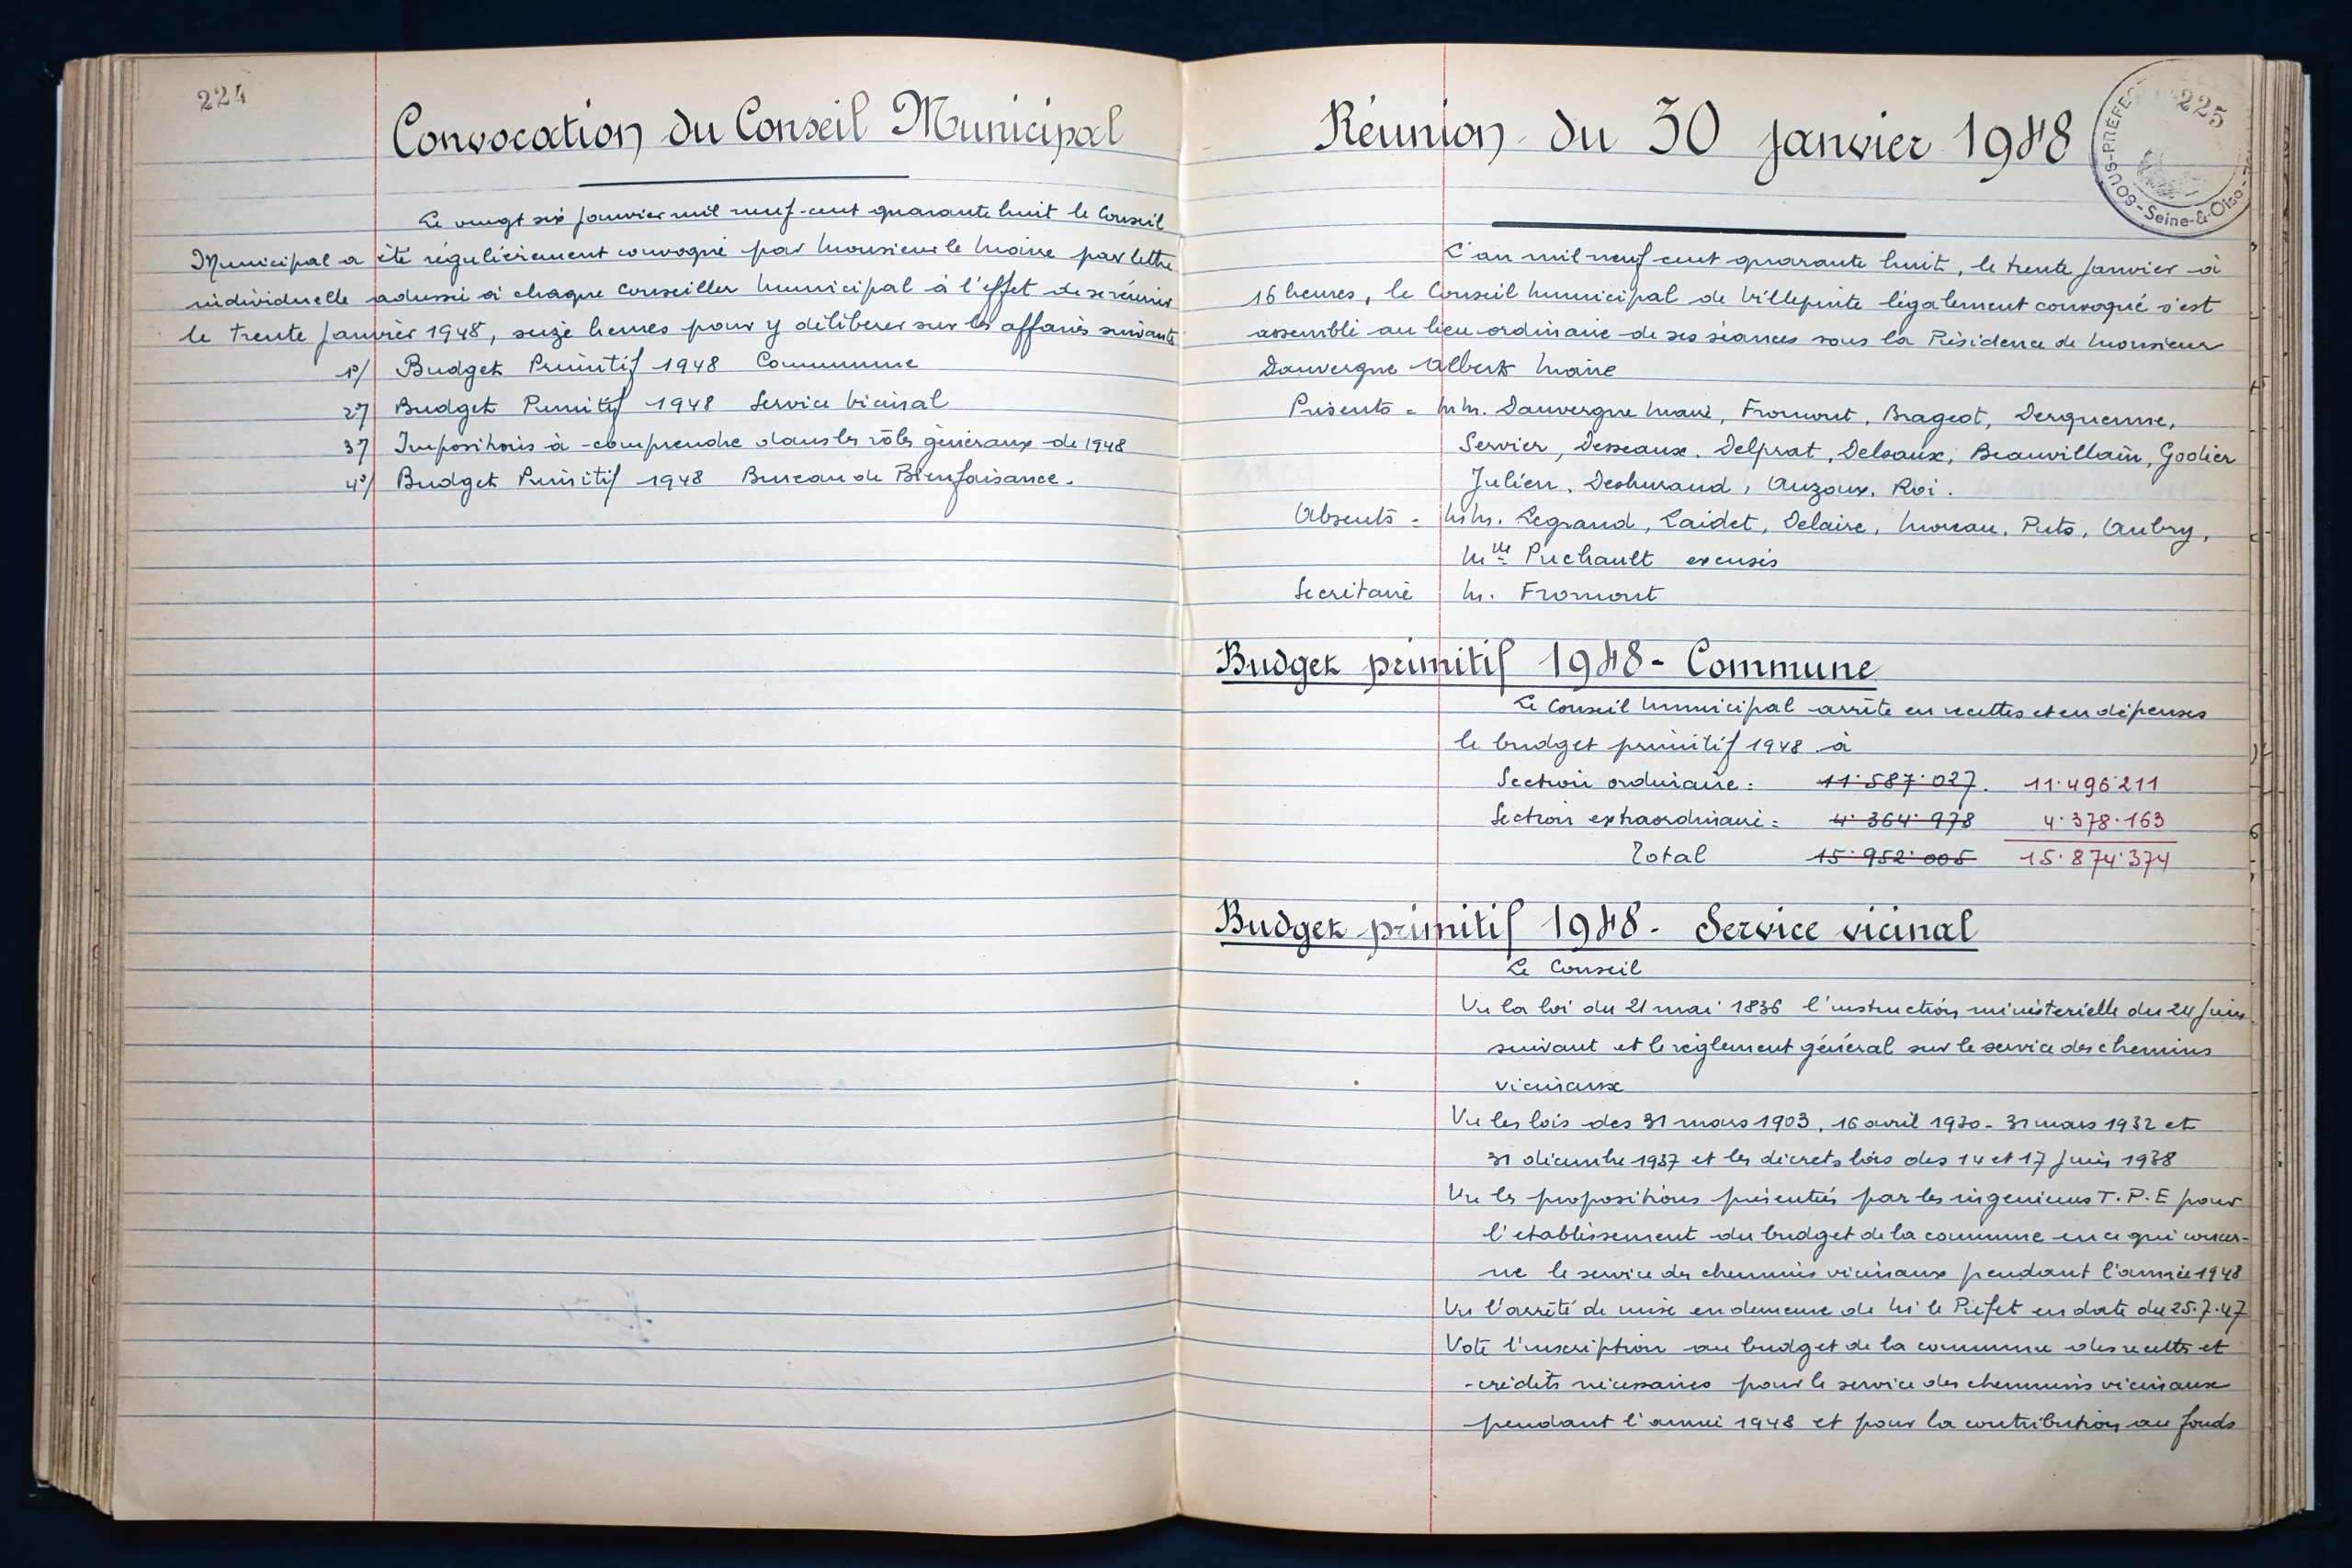 224
Convocation du Conseil Municipal
Le vingt six janvier mil neuf-cent quarante huit le Conseil
Municipal a été régulièrement convoqué par Monsieur le Maire par lettre
individuelle adressée à chaque Conseiller Municipal à l'effet de se réunir
le trente janvier 1948, seize heures pour y délibérer sur les affaires suivantes
1°/ Budget Primitif 1948 Commune
2°/ Budget Primitif 1948 Service Vicinal
3°/ Impositions à comprendre dans les rôles généraux de 1948
4°/ Budget Primitif 1948 Bureau de Bienfaisance.
225
SOUS-PRÉFEC
Seine-&-Oise
Réunion du 30 janvier 1948
L'an mil neuf cent quarante huit, le trente janvier à
16 heures, le Conseil Municipal de Villepinte légalement convoqué s'est
assemblé au lieu ordinaire de ses séances sous la Présidence de Monsieur
Dauvergne Albert Maire
Présents = MM. Dauvergne Maire, Fromont, Brageot, Derquenne,
Servier, Desseaux, Delprat, Delsaux, Beauvillain, Godier
Julien, Deshuraud, Auzoux, Roi.
Absents = MM. Legrand, Laidet, Delaire, Moreau, Puts, Aubry,
Mlle Puchault excusés
Secrétaire M. Fromont
Budget primitif 1948 - Commune
Le Conseil Municipal arrête en recettes et en dépenses
le budget primitif 1948 à
Section ordinaire : 11.587.027. 11.496.211
Section extraordinaire : 4.364.978 4.378.163
Total 15.952.005 15.874.374
Budget primitif 1948 - Service vicinal
Le Conseil
Vu la loi du 21 mai 1836 l'instruction ministérielle du 24 Juin
suivant et le règlement général sur le service des chemins
vicinaux
Vu les lois des 31 mars 1903, 16 avril 1930 - 31 mars 1932 et
31 décembre 1937 et les décrets lois des 14 et 17 Juin 1938
Vu les propositions présentées par les ingénieurs T.P.E pour
l'établissement du budget de la commune en ce qui concer-
ne le service des chemins vicinaux pendant l'année 1948
Vu l'arrêté de mise en demeure de M le Préfet en date du 25.7.47
Vote l'inscription au budget de la commune des recettes et
crédits nécessaires pour le service des chemins vicinaux
pendant l'année 1948 et pour la contribution au fonds